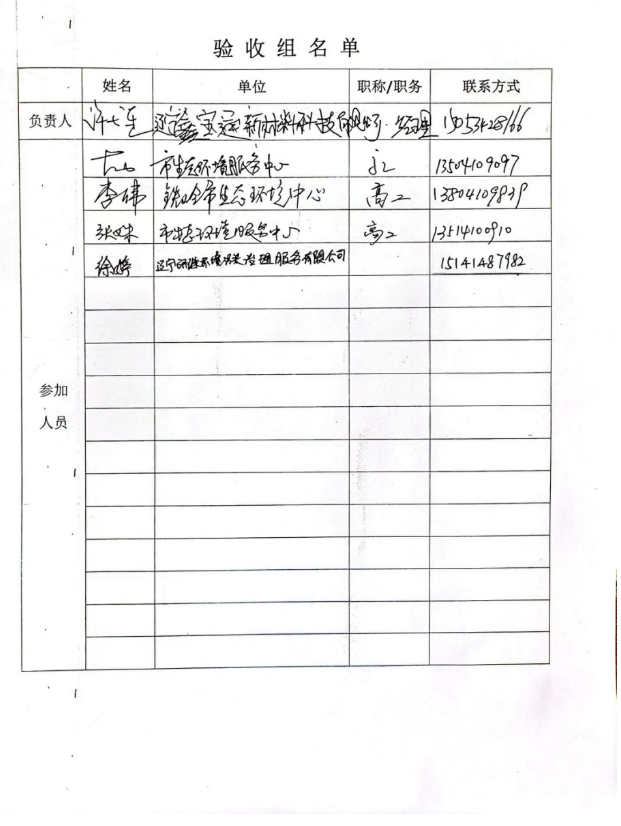 验收组名单
姓名 单位 职称/职务 联系方式
负责人 新材料科技有限公司 经理
市生态环境服务中心 13504109097
李伟 铁岭市生态环境中心 高工 13804109839
张姝 市生态环境服务中心 高工 13514100910
徐婷 服务有限公司 15141487982
参加
人员